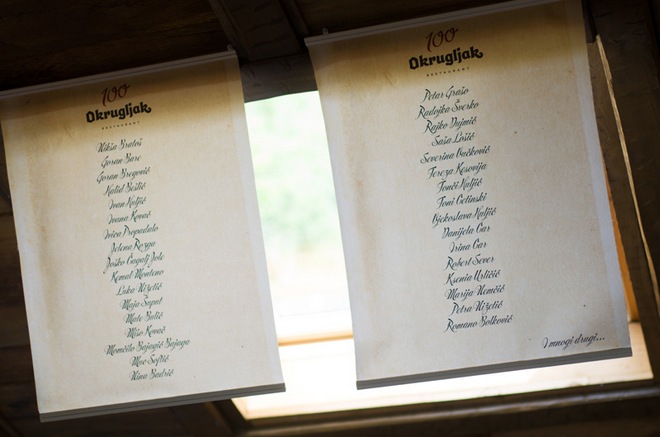 100
Okrugljak
RESTAURANT
Nikša Bratoš
Goran Bare
Goran Bregović
Halid Bešlić
Ivan Kaljić
Ivana Kovač
Ivica Propadalo
Jelena Rozga
Joško Čagalj Jole
Kemal Monteno
Luka Nižetić
Maja Šuput
Mate Bulić
Mišo Kovač
Momčilo Bajagić Bajaga
Mac Softić
Nina Badrić
100
Okrugljak
RESTAURANT
Petar Grašo
Radojka Šverko
Rajko Dujmić
Saša Lošić
Severina Vučković
Tereza Kesovija
Tonči Huljić
Toni Cetinski
Vjekoslava Huljić
Danijela Car
Irina Car
Robert Sever
Ksenia Urličić
Marija Nemčić
Petra Nižetić
Romano Bolković
I mnogi drugi...